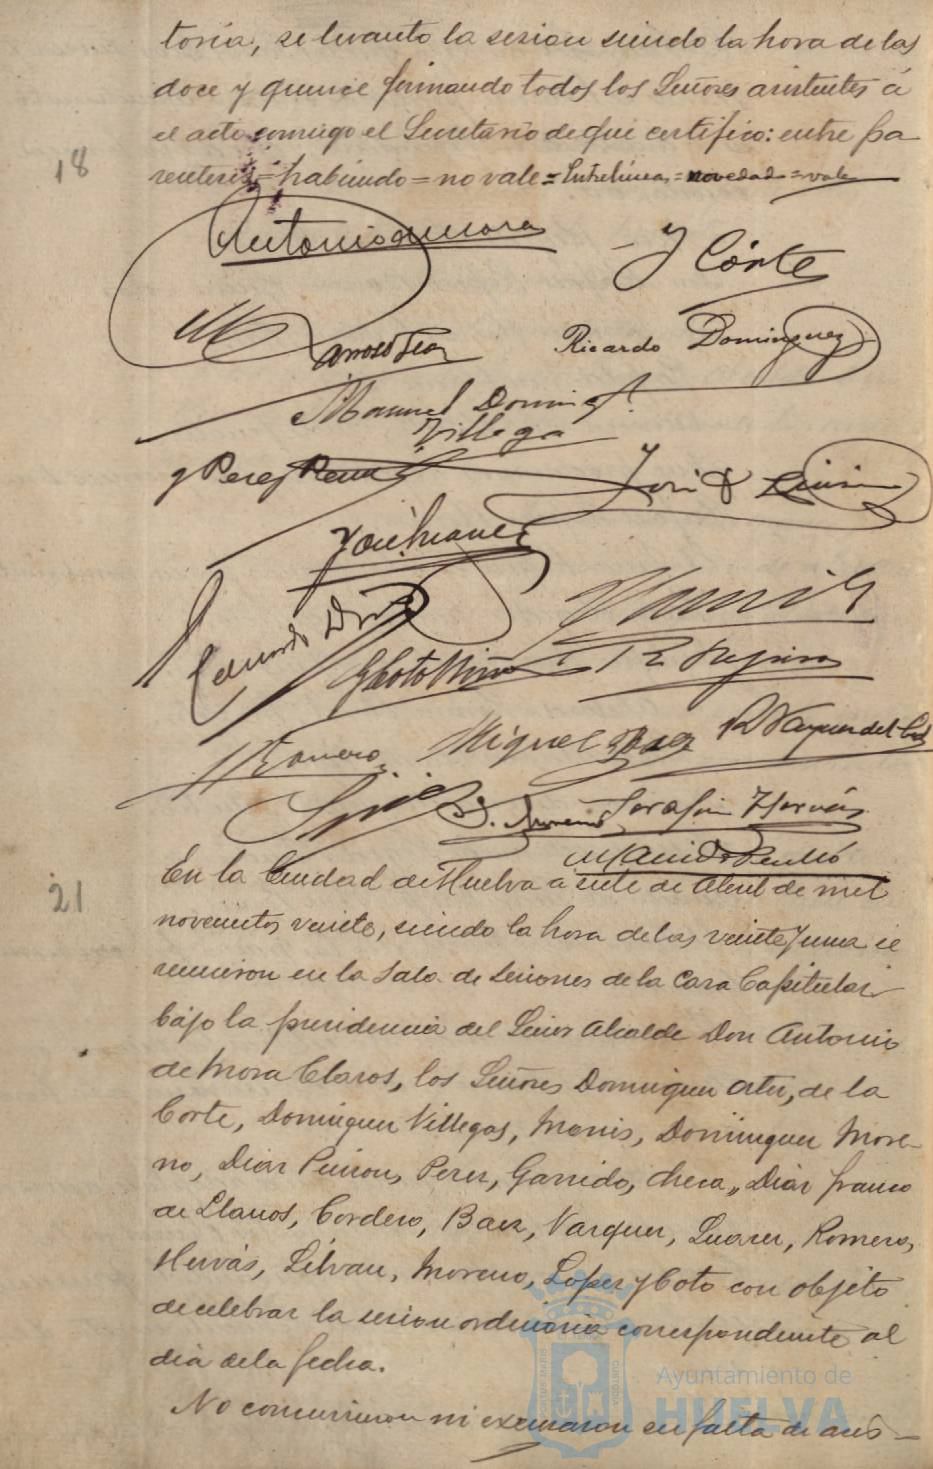 toria, se levanto la sesion siendo la hora de las
doce y quince firmando todos los Señores asistentes á
el acto conmigo el Secretario de que certifico: entre pa
rentesis = habiendo = no vale = Entrelineas = novedad = vale
18
Antonio de mora
Y Corte
Ricardo Dominguez
Manuel Doming
Villega
J Perez
José
Eduardo
G Coto
Miguel Baez
R Vazquez del
Romero
J. Moreno
Serafin Hervás
21
En la Ciudad de Huelva a siete de Abril de mil
novecientos veinte, siendo la hora de las veinte y una se
reunieron en la Sala de Sesiones de la Casa Capitular
bajo la presidencia del Señor Alcalde Don Antonio
de Mora Claros, los Señores Dominguez Ortiz, de la
Corte, Dominguez Villegas, Monis, Dominguez More-
no, Diaz Perez, Garrido, Checa, Diaz franco
de Llanos, Cordero, Baez, Vazquez, Suarez, Romero,
Hervás, Silvan, Moreno, Lopez y Coto con objeto
de celebrar la sesion ordinaria correspondiente al
dia de la fecha.
Ayuntamiento de
HUELVA
No concurrieron ni excusaron su falta de asis-